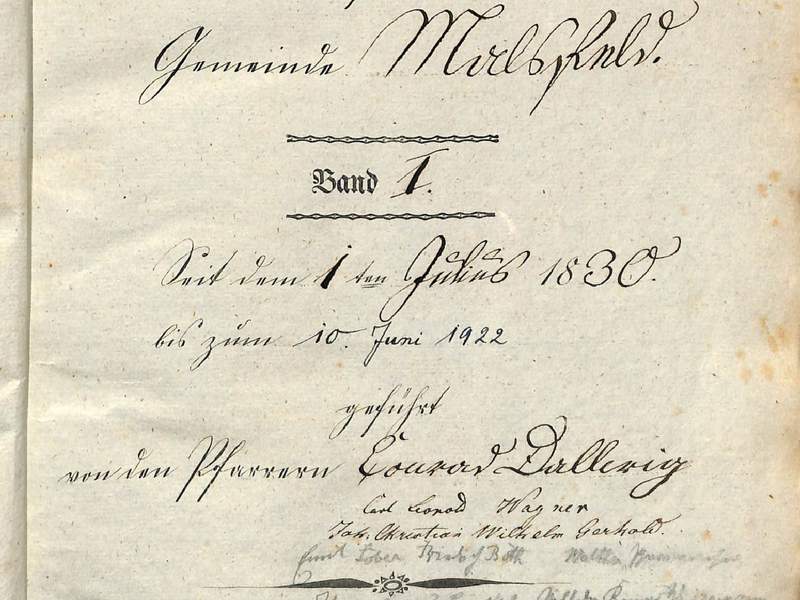 Gemeinde Malsfeld.
Band I.
Seit dem 1 ten Julius 1830.
bis zum 10. Juni 1922
geführt
von den Pfarrern Conrad Dallwig
Carl Leopold Wagner
Joh. Christian Wilhelm Gerhold.
Emil Roth